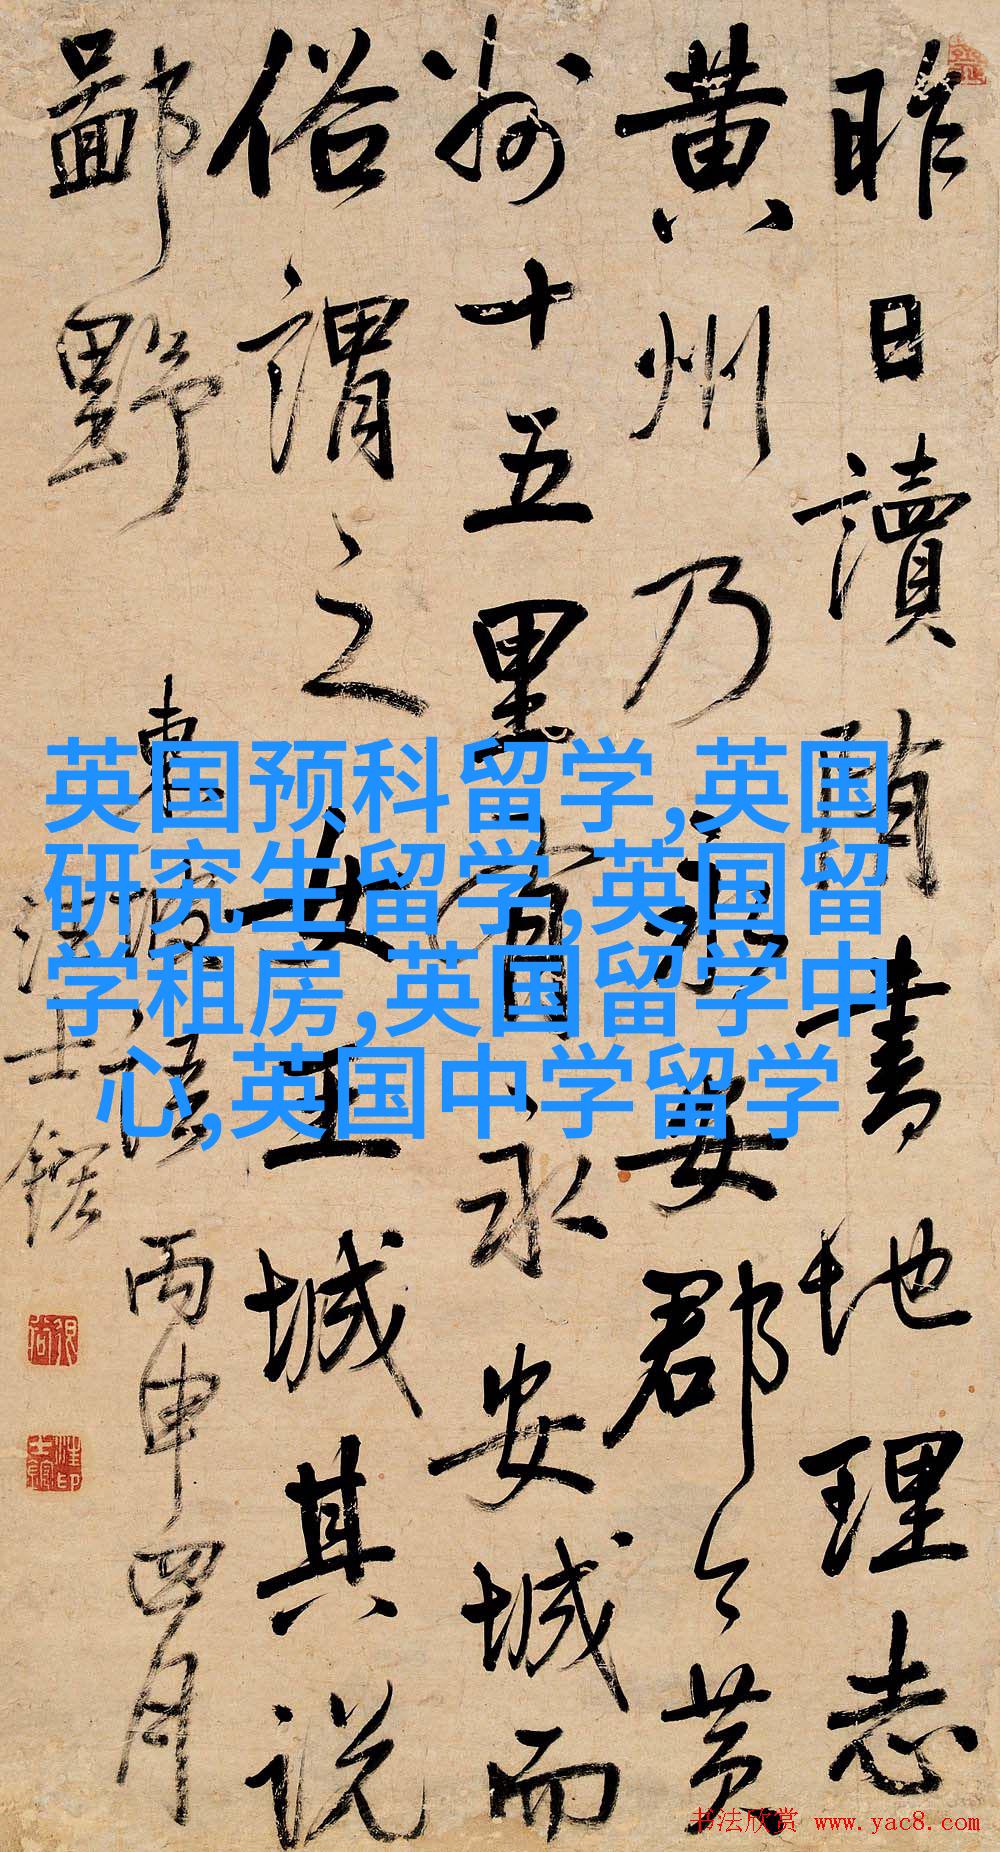 昨日讀隋書地理志
黄州乃永安郡今黄
州十五里有永安城而
俗謂之女王城其説
鄙野
東坡語 丙申四月
汪士鋐
英国预科留学,英国
研究生留学,英国留
学租房,英国留学中
心,英国中学留学
书法欣赏 www.yac8.com